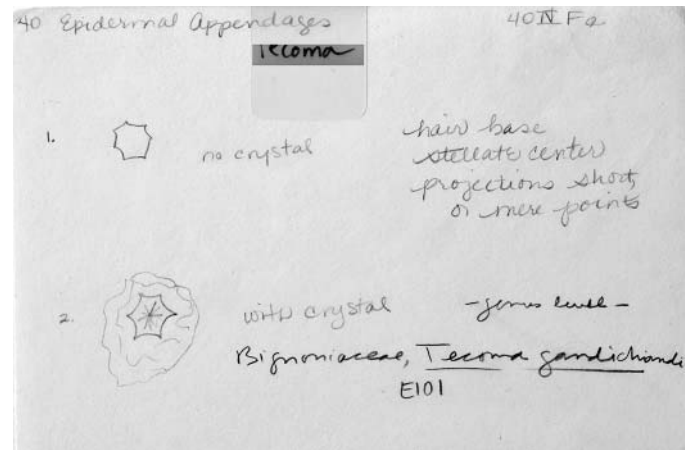 40 Epidermal Appendages
40 IV Fa
Tecoma
1.
no crystal
hair base
stellate center
projections short,
or mere points
2.
with crystal
-genus level-
Bignoniaceae, Tecoma gaudichaudi
E101